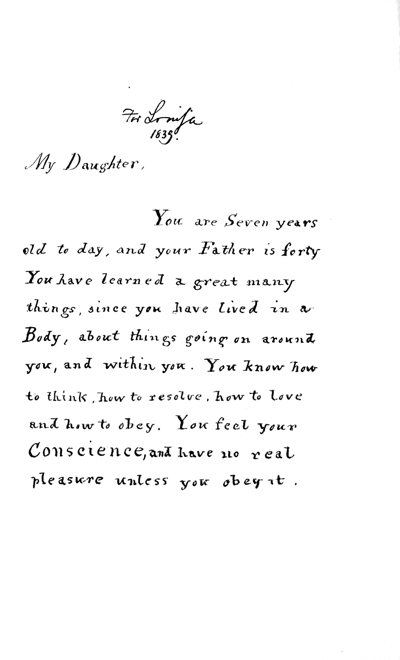 For Louisa
1839.
My Daughter,
You are Seven years
old to day, and your Father is forty
You have learned a great many
things, since you have lived in a
Body, about things going on around
you, and within you. You know how
to think, how to resolve, how to love
and how to obey. You feel your
Conscience, and have no real
pleasure unless you obey it.